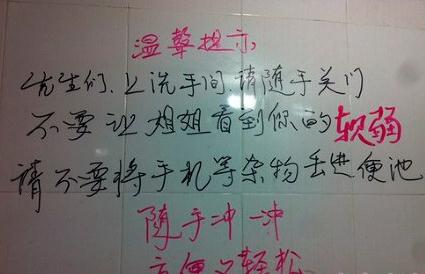 温馨提示
先生们.上洗手间.请随手关门
不要让姐姐看到你的软弱
请不要将手机等杂物丢进便池
随手冲一冲
方便又轻松